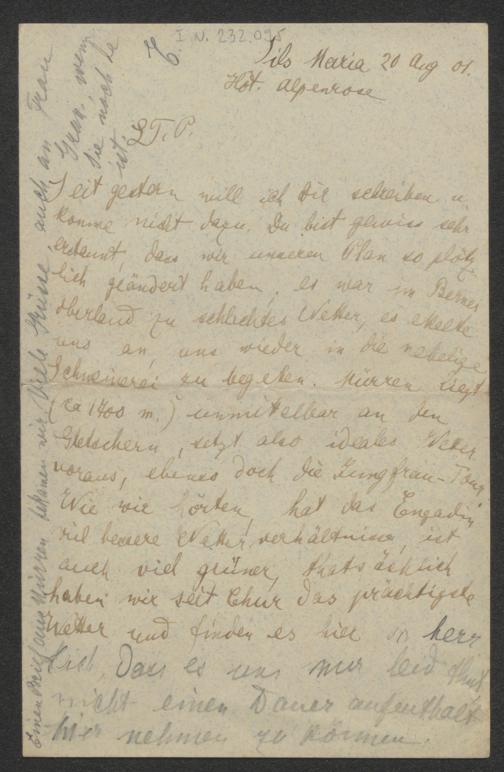 I.N. 232.095
Sils Maria 20 Aug 01.
Hot. Alpenrose
L. T. P.
Seit gestern will ich Dir schreiben u.
komme nicht dazu. Du bist gewiss sehr
erstaunt, dass wir unseren Plan so plötz
lich geändert haben, es war im Berner
Oberland zu schlechtes Wetter, es ekelte
uns an, uns wieder in die nebelige
Schweinerei zu begeben. Mürren liegt
(ca 1700 m.) unmittelbar an den
Gletschern, setzt also ideales Wetter
voraus, ebenso doch die Jungfrau-Tour.
Wie wir hörten, hat das Engadin
viel bessere Wetterverhältnisse, ist
auch viel grüner, thatsächlich
haben wir seit Chur das prächtigste
Wetter und finden es hier so herr
lich, dass es uns nur leid thut
nicht einen Daueraufenthalt
hier nehmen zu können.
Einen Brief aus Mürren bekamen wir. Viele Grüsse auch an Frau
Grav. wenn
Sie noch da
ist.